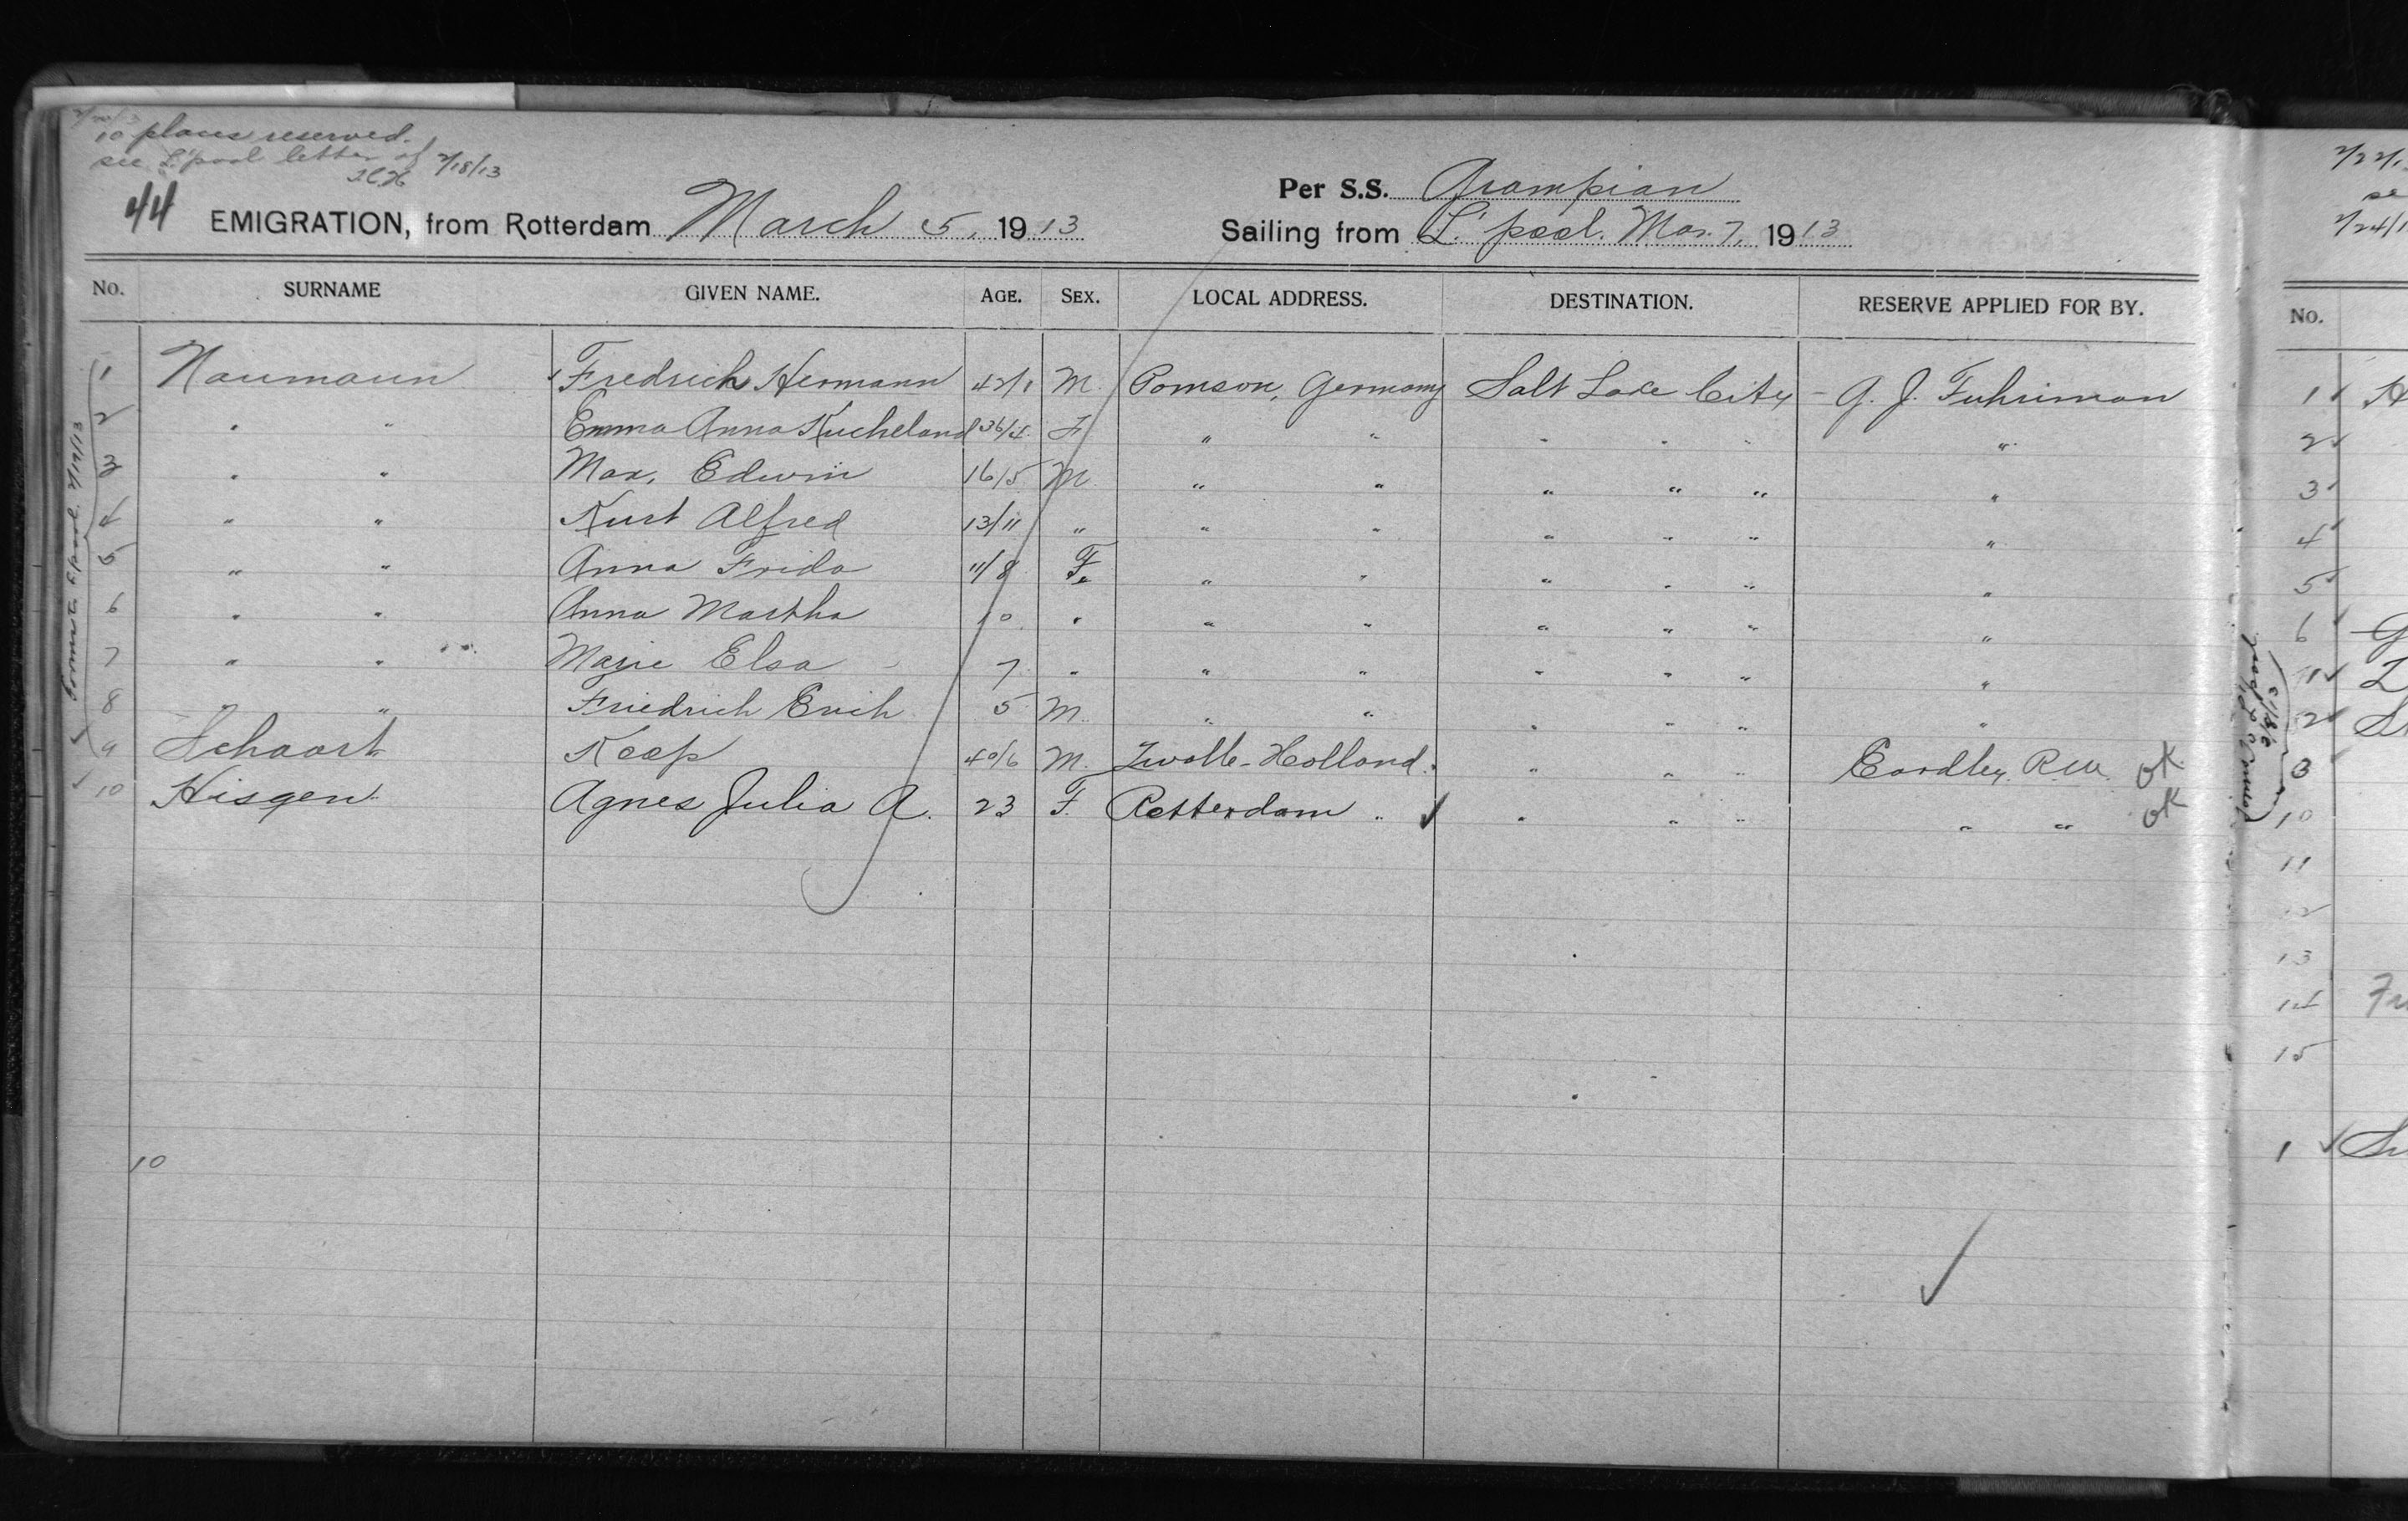 10 places reserved.
see L'pool letter of 2/18/13
44
Per S.S. Grampian
EMIGRATION, from Rotterdam March 5, 1913
Sailing from L'pool. Mar. 7, 1913
No. SURNAME GIVEN NAME. AGE. SEX. LOCAL ADDRESS. DESTINATION. RESERVE APPLIED FOR BY.
1 Naumann Fredrich Hermann 42/1 M. Pomson, Germany Salt Lake City - G. J. Fuhriman
2 " " Emma Anna Kucheland 36/4 F " " " " " "
3 " " Max, Edwin 16/5 M. " " " " " "
4 " " Kurt Alfred 13/11 " " " " " " "
5 " " Anna Frida 11/8 F. " " " " " "
6 " " Anna Martha 10 " " " " " " "
7 " " Marie Elsa 7 " " " " " " "
8 " " Friedrich Erich 5 M. " " " " " "
9 Schaart Kaap 40/6 M. Zwolle - Holland. " " " Eardley, R.W. OK
10 Hisgen Agnes Julia A. 23 F. Rotterdam " ✓ " " " " " OK
10
✓
2/22/1
se
2/24/1
No.
1 ✓ H
2 ✓
3 ✓
4 ✓
5 ✓
6 G
1 ✓ Z
2 ✓ S
3
10
11
12
13
14 Fr
15
1 ✓